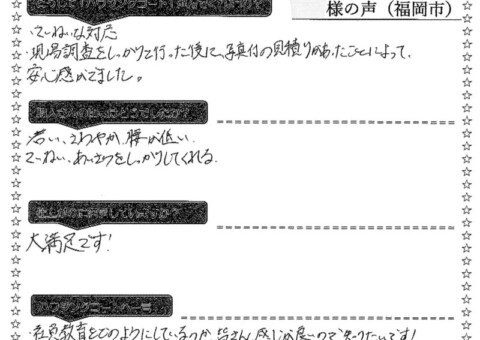 様の声（福岡市）
・ていねいな対応
・現場調査をしっかり行った後に、写真付の見積りがあったことによって、
安心感がでました。
若い、さわやか、腰が低い
ていねい、あいさつをしっかりしてくれる。
大満足です！
・社員教育をどのようにしているのか、皆さん感じが良いので知りたいです！